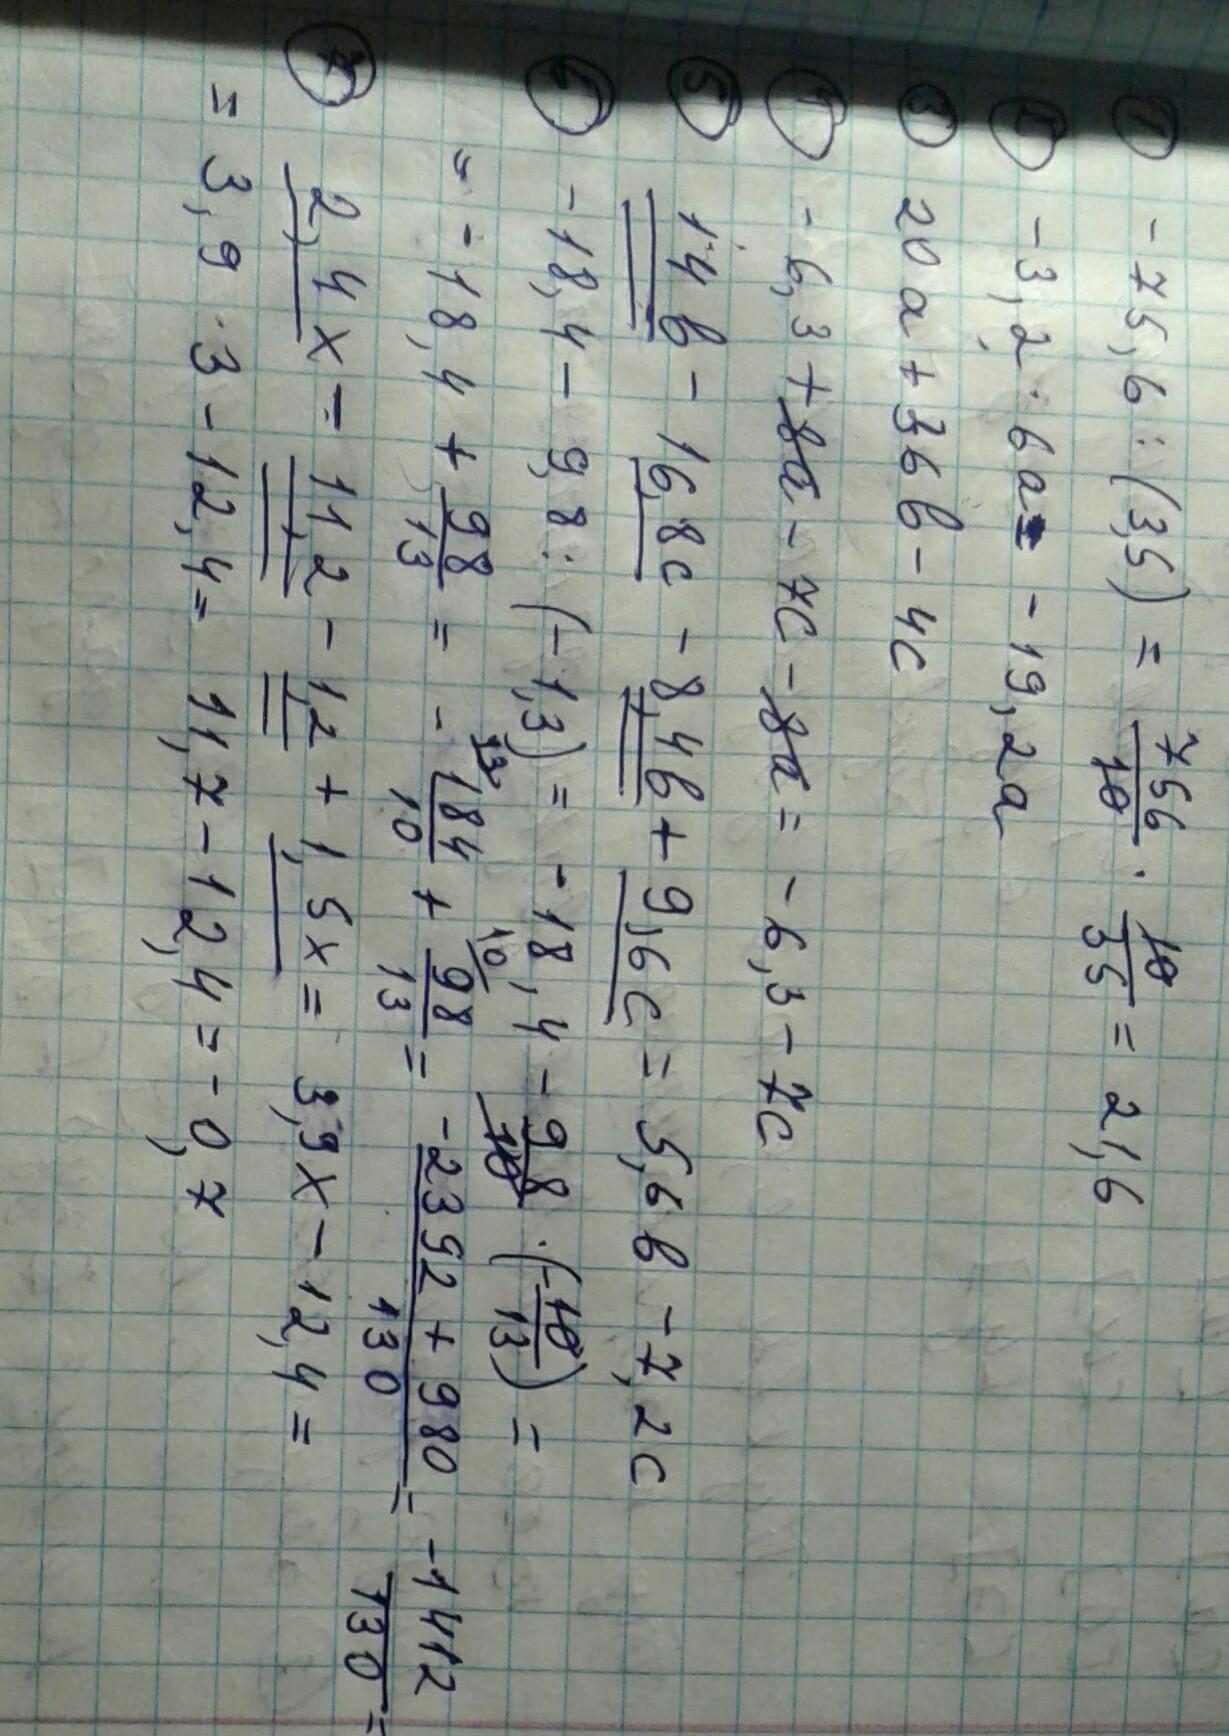 ① -75,6 : (3,5) = 756/10 · 10/35 = 21,6
② -3,2 · 6a = -19,2a
③ 20a + 36b - 4c
④ -6,3 + 8a - 7c - 8a = -6,3 - 7c
⑤ 14b - 16,8c - 8,4b + 9,6c = 5,6b - 7,2c
⑥ -18,4 - 9,8 : (-1,3) = -18,4 - 98/10 · (-10/13) =
= -18,4 + 98/13 = - 13/ 184/10 + 10/ 98/13 = (-2392 + 980)/130 = -1412/130 =
⑦ 2,4x - 11,2 - 1,2 + 1,5x = 3,9x - 12,4 =
= 3,9 · 3 - 12,4 = 11,7 - 12,4 = -0,7